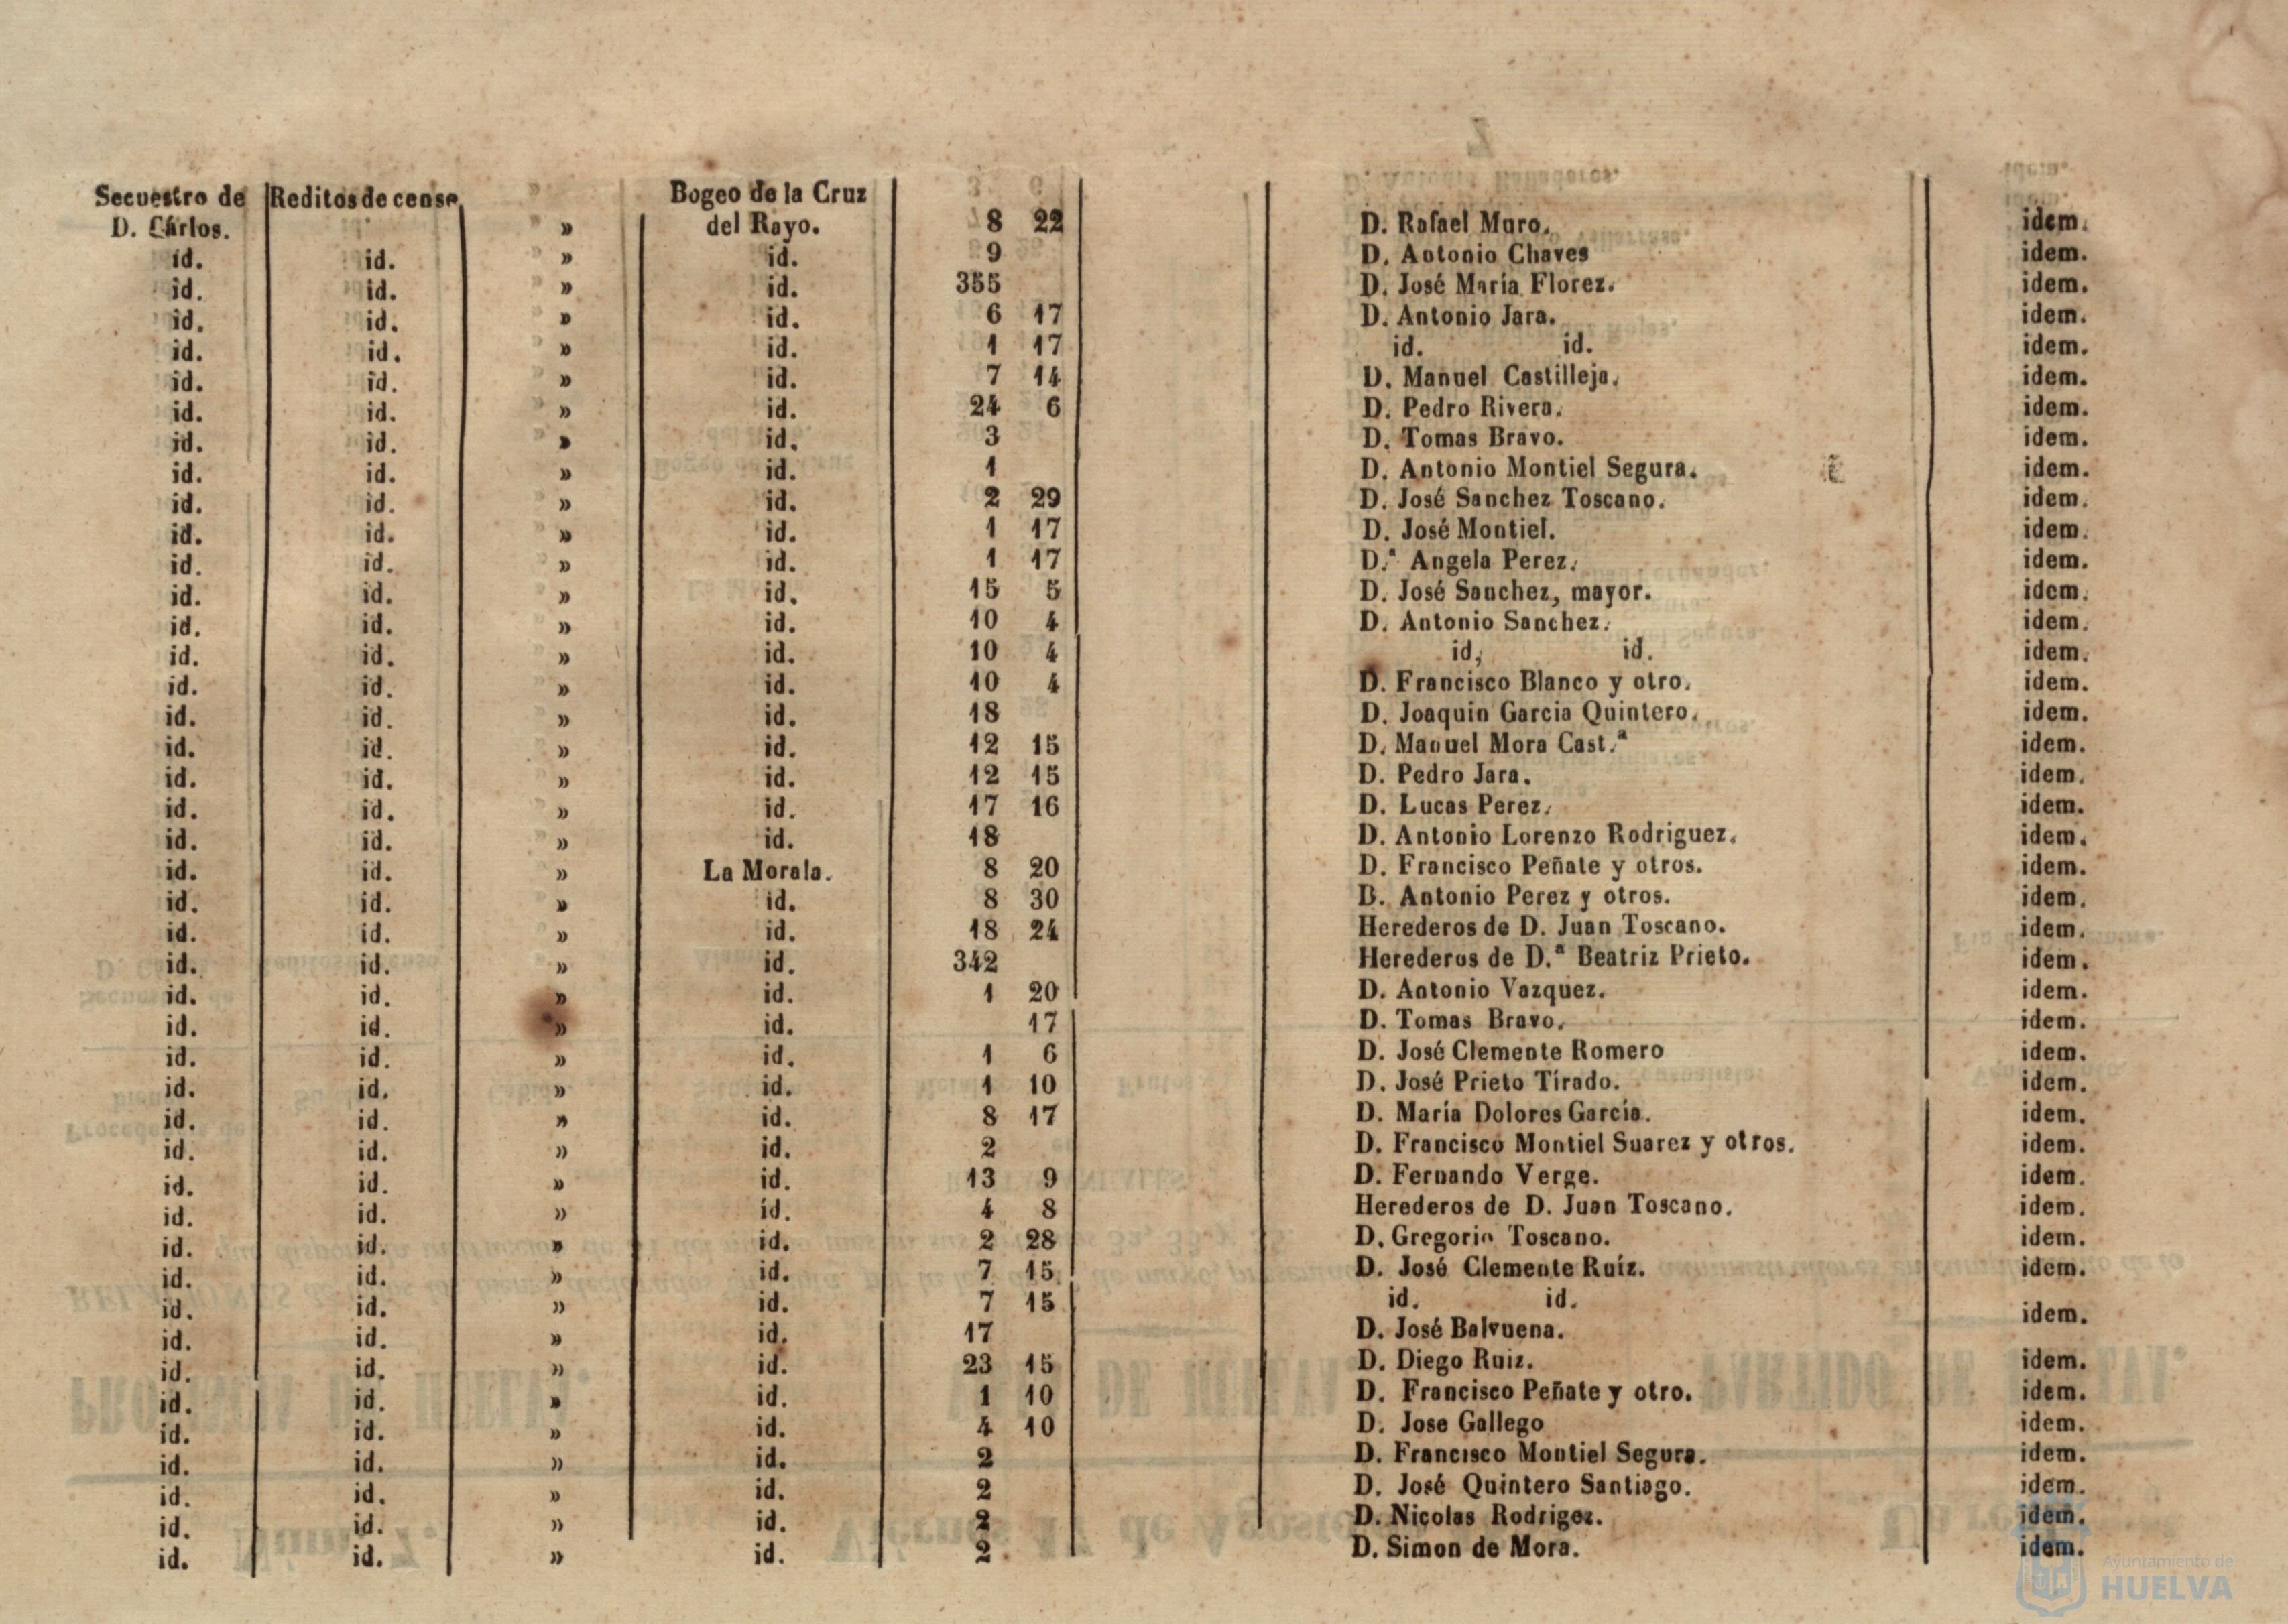 Secuestro de Reditos de censo Bogeo de la Cruz
D. Cárlos. » del Rayo. 8 22 D. Rafael Muro. idem.
id. id. » id. 9 D. Antonio Chaves idem.
id. id. » id. 355 D. José María Florez. idem.
id. id. » id. 6 17 D. Antonio Jara. idem.
id. id. » id. 1 17 id. id. idem.
id. id. » id. 7 14 D. Manuel Castilleja. idem.
id. id. » id. 24 6 D. Pedro Rivera. idem.
id. id. » id. 3 D. Tomas Bravo. idem.
id. id. » id. 1 D. Antonio Montiel Segura. idem.
id. id. » id. 2 29 D. José Sanchez Toscano. idem.
id. id. » id. 1 17 D. José Montiel. idem.
id. id. » id. 1 17 D.ª Angela Perez. idem.
id. id. » id. 15 5 D. José Sanchez, mayor. idem.
id. id. » id. 10 4 D. Antonio Sanchez. idem.
id. id. » id. 10 4 id, id. idem.
id. id. » id. 10 4 D. Francisco Blanco y otro. idem.
id. id. » id. 18 D. Joaquin Garcia Quintero. idem.
id. id. » id. 12 15 D. Manuel Mora Cast.ª idem.
id. id. » id. 12 15 D. Pedro Jara. idem.
id. id. » id. 17 16 D. Lucas Perez. idem.
id. id. » id. 18 D. Antonio Lorenzo Rodriguez. idem.
id. id. » La Morala. 8 20 D. Francisco Peñate y otros. idem.
id. id. » id. 8 30 D. Antonio Perez y otros. idem.
id. id. » id. 18 24 Herederos de D. Juan Toscano. idem.
id. id. » id. 342 Herederos de D.ª Beatriz Prieto. idem.
id. id. » id. 1 20 D. Antonio Vazquez. idem.
id. id. » id. 17 D. Tomas Bravo. idem.
id. id. » id. 1 6 D. José Clemente Romero idem.
id. id. » id. 1 10 D. José Prieto Tirado. idem.
id. id. » id. 8 17 D. María Dolores García. idem.
id. id. » id. 2 D. Francisco Montiel Suarez y otros. idem.
id. id. » id. 13 9 D. Fernando Verge. idem.
id. id. » id. 4 8 Herederos de D. Juan Toscano. idem.
id. id. » id. 2 28 D. Gregorio Toscano. idem.
id. id. » id. 7 15 D. José Clemente Ruíz. idem.
id. id. » id. 7 15 id. id. idem.
id. id. » id. 17 D. José Balvuena.
id. id. » id. 23 15 D. Diego Ruiz. idem.
id. id. » id. 1 10 D. Francisco Peñate y otro. idem.
id. id. » id. 4 10 D. Jose Gallego idem.
id. id. » id. 2 D. Francisco Montiel Segura. idem.
id. id. » id. 2 D. José Quintero Santiago. idem.
id. id. » id. 2 D. Nicolas Rodrigez. idem.
id. id. » id. 2 D. Simon de Mora. idem.
Ayuntamiento de
HUELVA